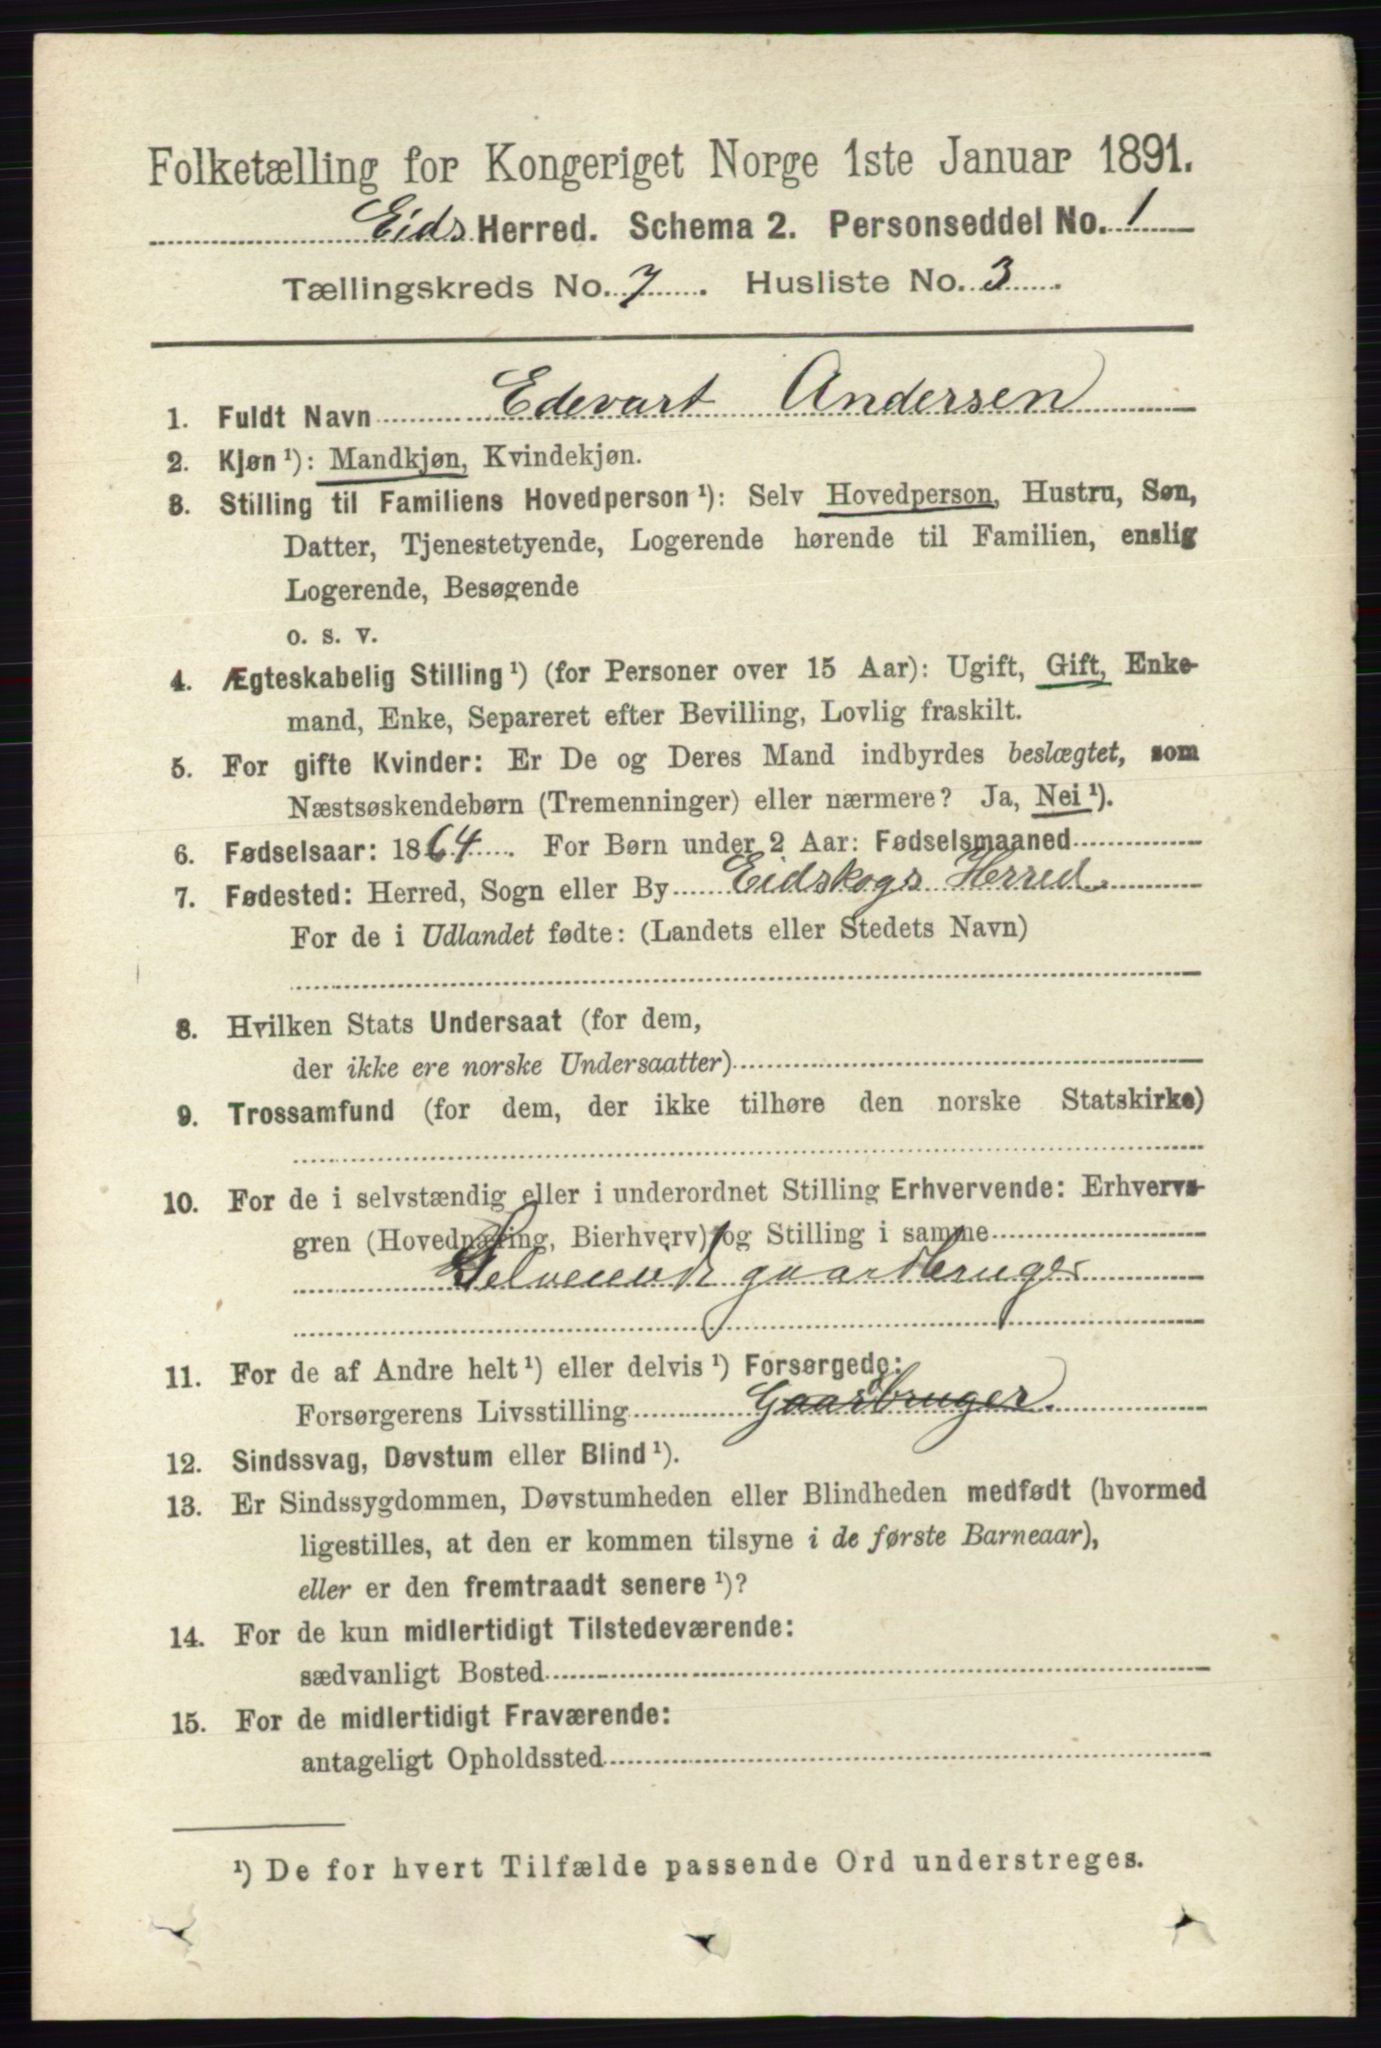 Folketælling for Kongeriget Norge 1ste Januar 1891.
Eids Herred. Schema 2. Personseddel No. 1
Tællingskreds No. 7. Husliste No. 3.
1. Fuldt Navn Edevart Andersen
2. Kjøn¹): Mandkjøn, Kvindekjøn.
3. Stilling til Familiens Hovedperson¹): Selv Hovedperson, Hustru, Søn,
Datter, Tjenestetyende, Logerende hørende til Familien, enslig
Logerende, Besøgende
o. s. v.
4. Ægteskabelig Stilling¹) (for Personer over 15 Aar): Ugift, Gift, Enke-
mand, Enke, Separeret efter Bevilling, Lovlig fraskilt.
5. For gifte Kvinder: Er De og Deres Mand indbyrdes beslægtet, som
Næstsøskendebørn (Tremenninger) eller nærmere? Ja, Nei¹).
6. Fødselsaar: 1864. For Børn under 2 Aar: Fødselsmaaned
7. Fødested: Herred, Sogn eller By Eidskogs Herred.
For de i Udlandet fødte: (Landets eller Stedets Navn)
8. Hvilken Stats Undersaat (for dem,
der ikke ere norske Undersaatter)
9. Trossamfund (for dem, der ikke tilhøre den norske Statskirke)
10. For de i selvstændig eller i underordnet Stilling Erhvervende: Erhvervs-
gren (Hovednæring, Bierhverv) og Stilling i samme
Selveiende gaardbruger
11. For de af Andre helt¹) eller delvis¹) Forsørgede:
Forsørgerens Livsstilling Gaardbruger.
12. Sindssvag, Døvstum eller Blind¹).
13. Er Sindssygdommen, Døvstumheden eller Blindheden medfødt (hvormed
ligestilles, at den er kommen tilsyne i de første Barneaar),
eller er den fremtraadt senere¹)?
14. For de kun midlertidigt Tilstedeværende:
sædvanligt Bosted
15. For de midlertidigt Fraværende:
antageligt Opholdssted
¹) De for hvert Tilfælde passende Ord understreges.